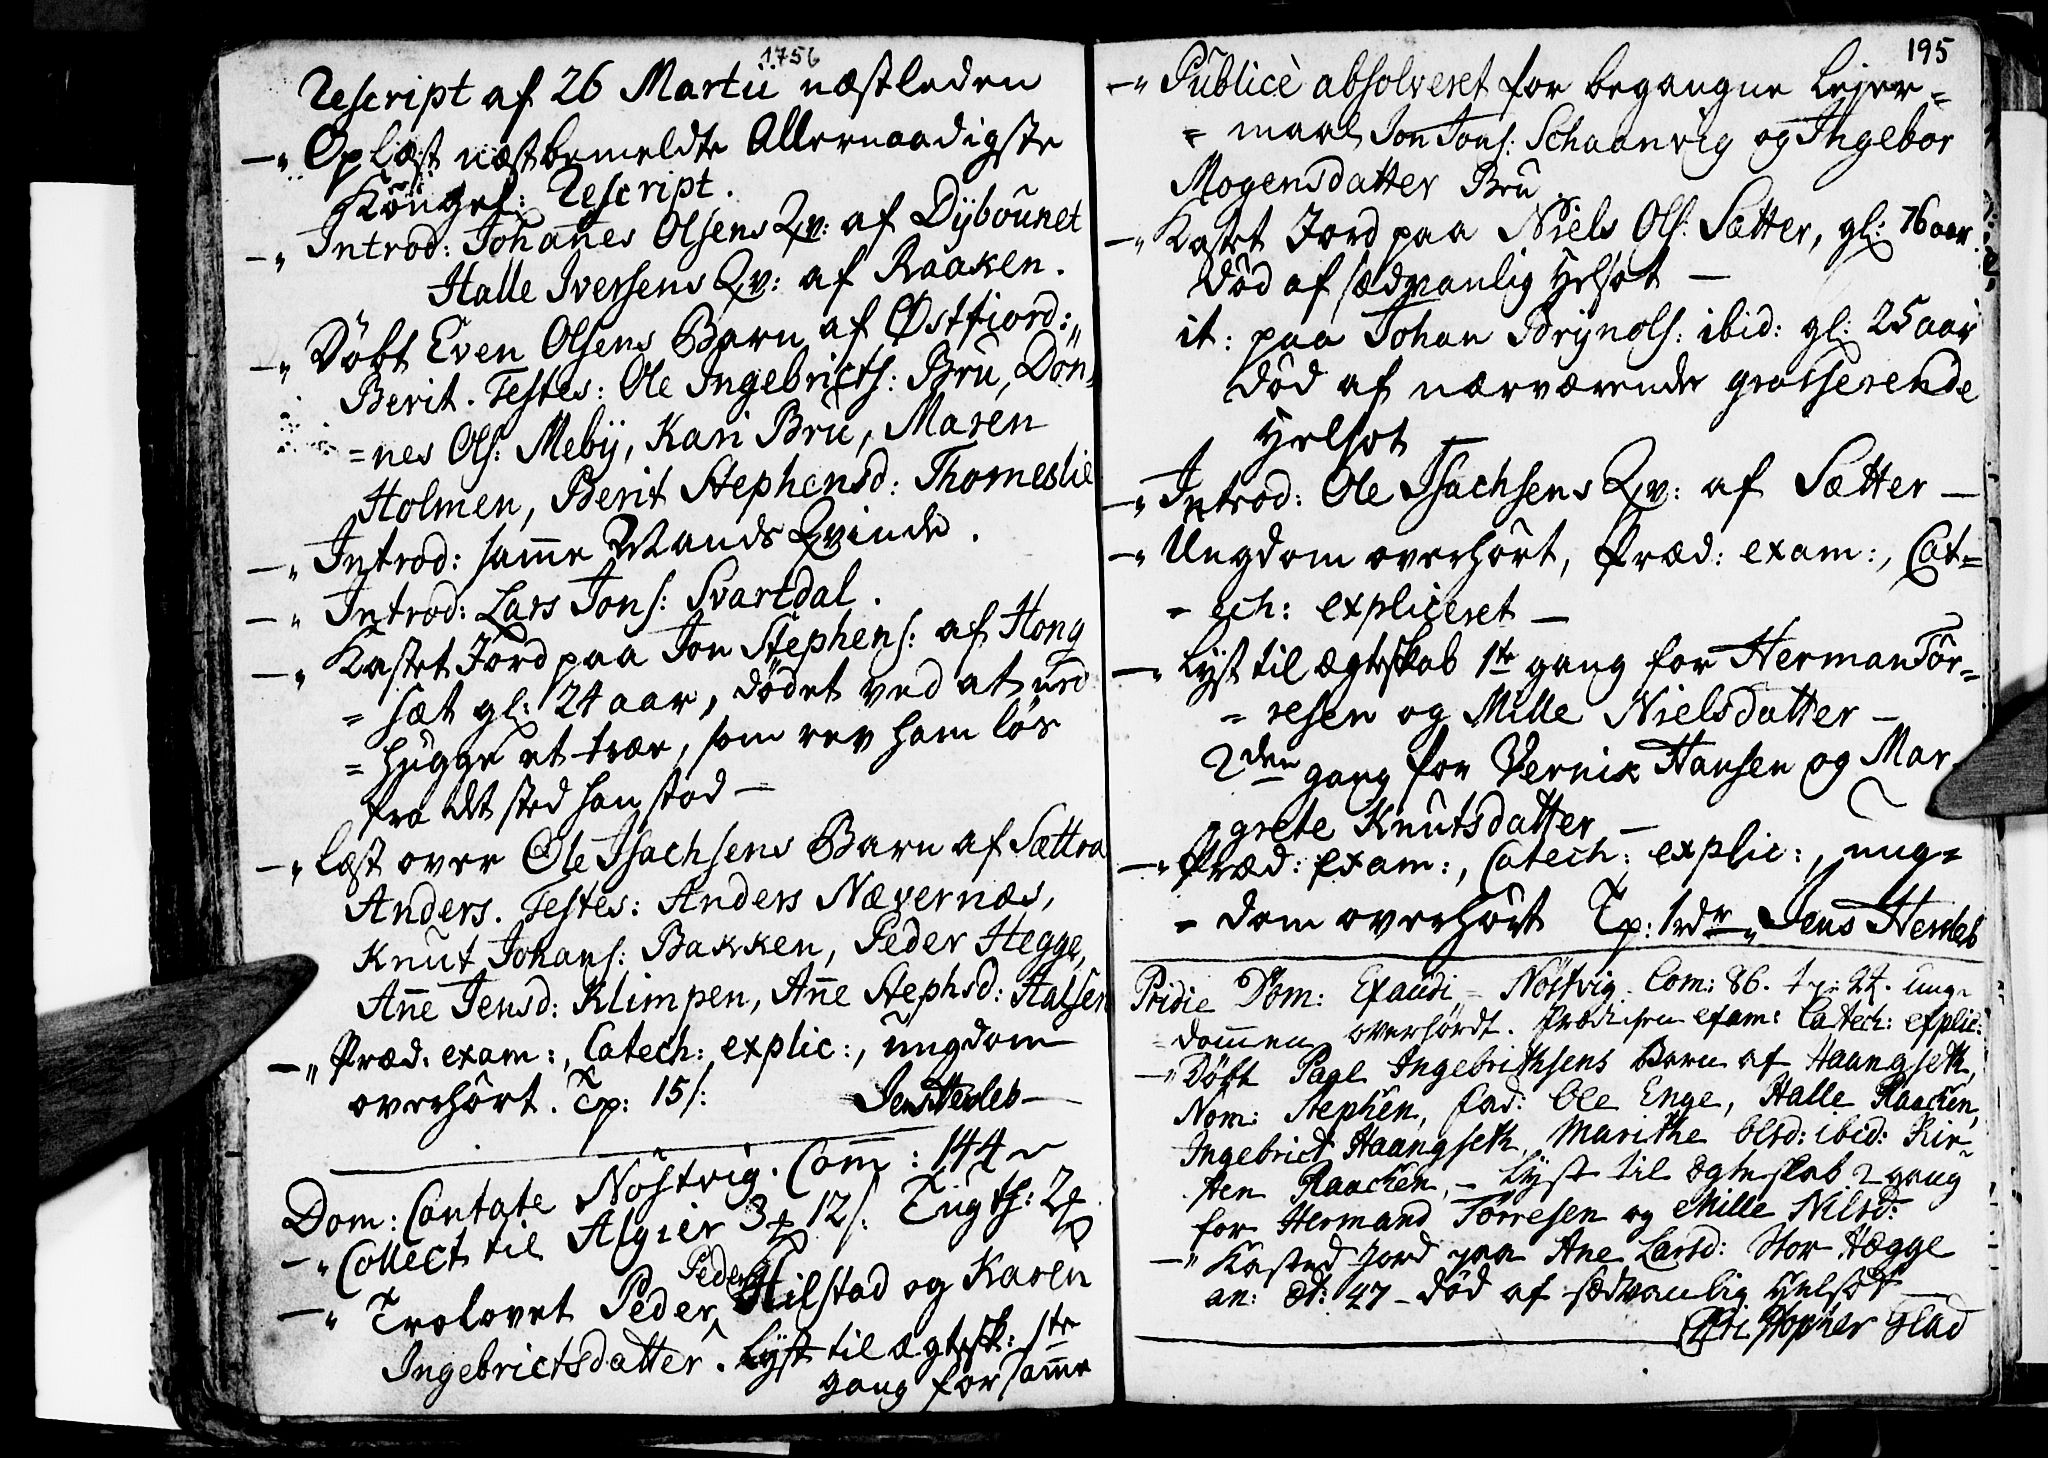 1756
Rescript af 26 Martii næstleden
—" Oplæst næstbemeldte Allernaadigste
Kongel: Rescript.
—" Introd: Johannes Olsens Qv: af Dÿbounet
Halle Iversens Qv: af Raaken.
—" Döbt Even Olsens Barn af Østfiord:,
Berit. Testes: Ole Ingebricts: Bru, Dön-
=nes Ols: Mebÿ, Kari Bru, Maren
Holmen, Berit Stephensd: Thomeslie
—" Introd: samme Mands Qvinde.
—" Introd: Lars Jons: Svartdal.
—" Kastet Jord paa Jon Stephens: af Hong
= sæt gl: 24 aar, dödet ved at
= hugge et træe, som rev ham lös
fra det sted han stod —
—" Læst over Ole Isachsens Barn af Sættra
Anders. Testes: Anders Nævernæs,
Knut Johans: Bakken, Peder Hegge,
Anne Jensd: Klimpen, Anne Stephsd: Halsen
—" Præd: exam:, Catech: explic:, ungdom
overhört. Tp: 15 s: Jens Herdeb—
Dom: Cantate Nöstvig. Comm: 144
—" Collect til Algier 3 12 s: Tugth: 2
—" Trolovet Peder Peders: Hilstad og Karen
Ingebrictsdatter. Lyst til ægtesk: 1ste
gang for samme
195
—" Publicè absolveret for begangne Leier=
= maal Jon Jons: Schaanvig og Ingebor
Mogensdatter Bru.
—" Kastet Jord paa Niels Ols: Sætter, gl: 76 aar.
död af sædvanlig Helsot —
it: paa Johan Brÿnols: ibid: gl: 25 aar
död af nærværende grasserende
Helsot
—" Introd: Ole Isachsens Qv: af Sætter —
—" Ungdom overhört, Præd: exam:, Cat=
= ech: expliceret —
—" Lyst til ægteskab 1te gang for Herman Tör-
= resen og Mille Nielsdatter —
2den gang for Vernik Hansen og Mar
= grete Knutsdatter —
—" Præd: exam:, Catech: explic:, ung=
= dom overhört Tp: 1rdr —" Jens Herdeb
Pridie Dom: Exaudi = Nöstvig. Com: 86. tp: 24. ung=
= dommen overhördt. Prædiken exam: Catech: explic:
—" Döbt Paal Ingebrithsens Barn af Haangseth,
Nom: Stephen, fad: Ole Enge, Halle Raachen,
Ingebrict Haangseth, Marithe Olsd: ibid: Kir-
sten Raachen, — Lyst til ægteskab 2 gang
for Hermand Törresen og Mille Nilsd:
—" Kasted Jord paa Ane Larsd: Stor Hægge
an: æt: 47 — död af sædvanlig Helsot —
Glad